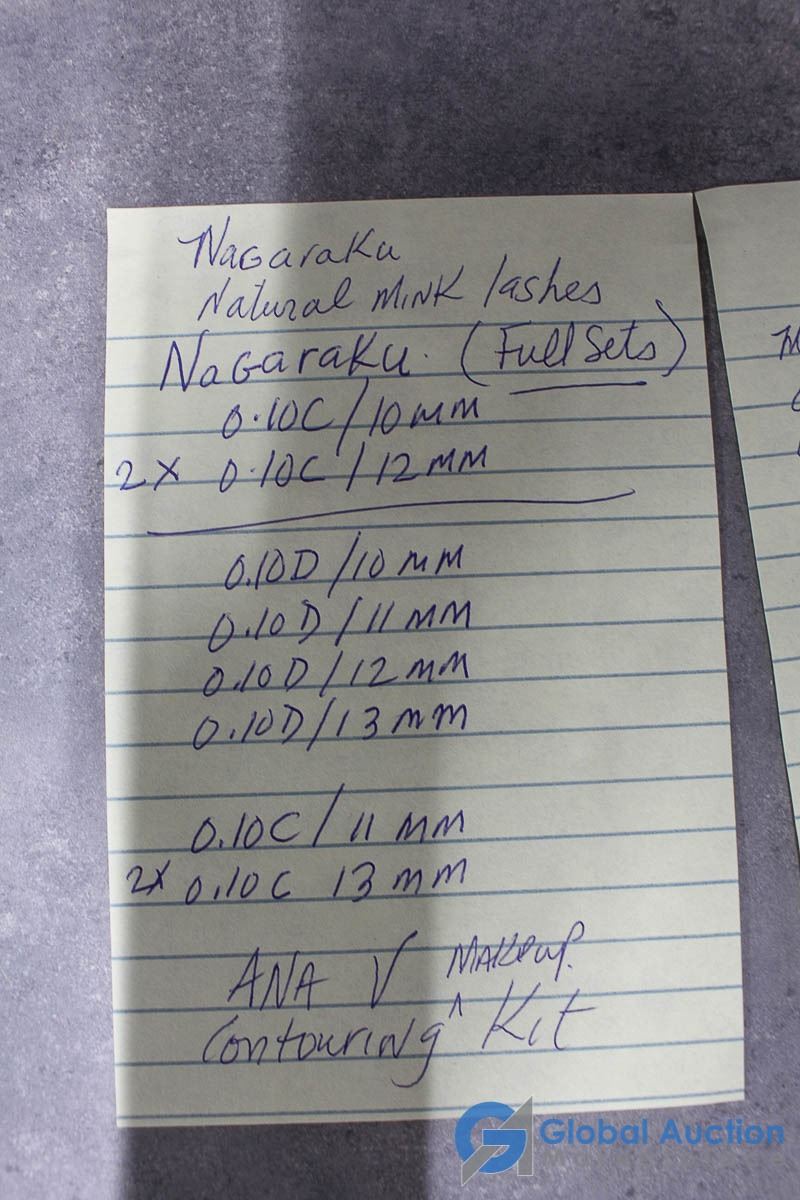 Nagaraku
Natural Mink lashes
Nagaraku. (Full Sets)
0.10C/10mm
2x 0.10C/12mm
0.10D/10mm
0.10D/11mm
0.10D/12mm
0.10D/13mm
0.10C/11mm
2x 0.10C 13mm
ANA V Makeup.
Contouring ^ Kit
Global Auction